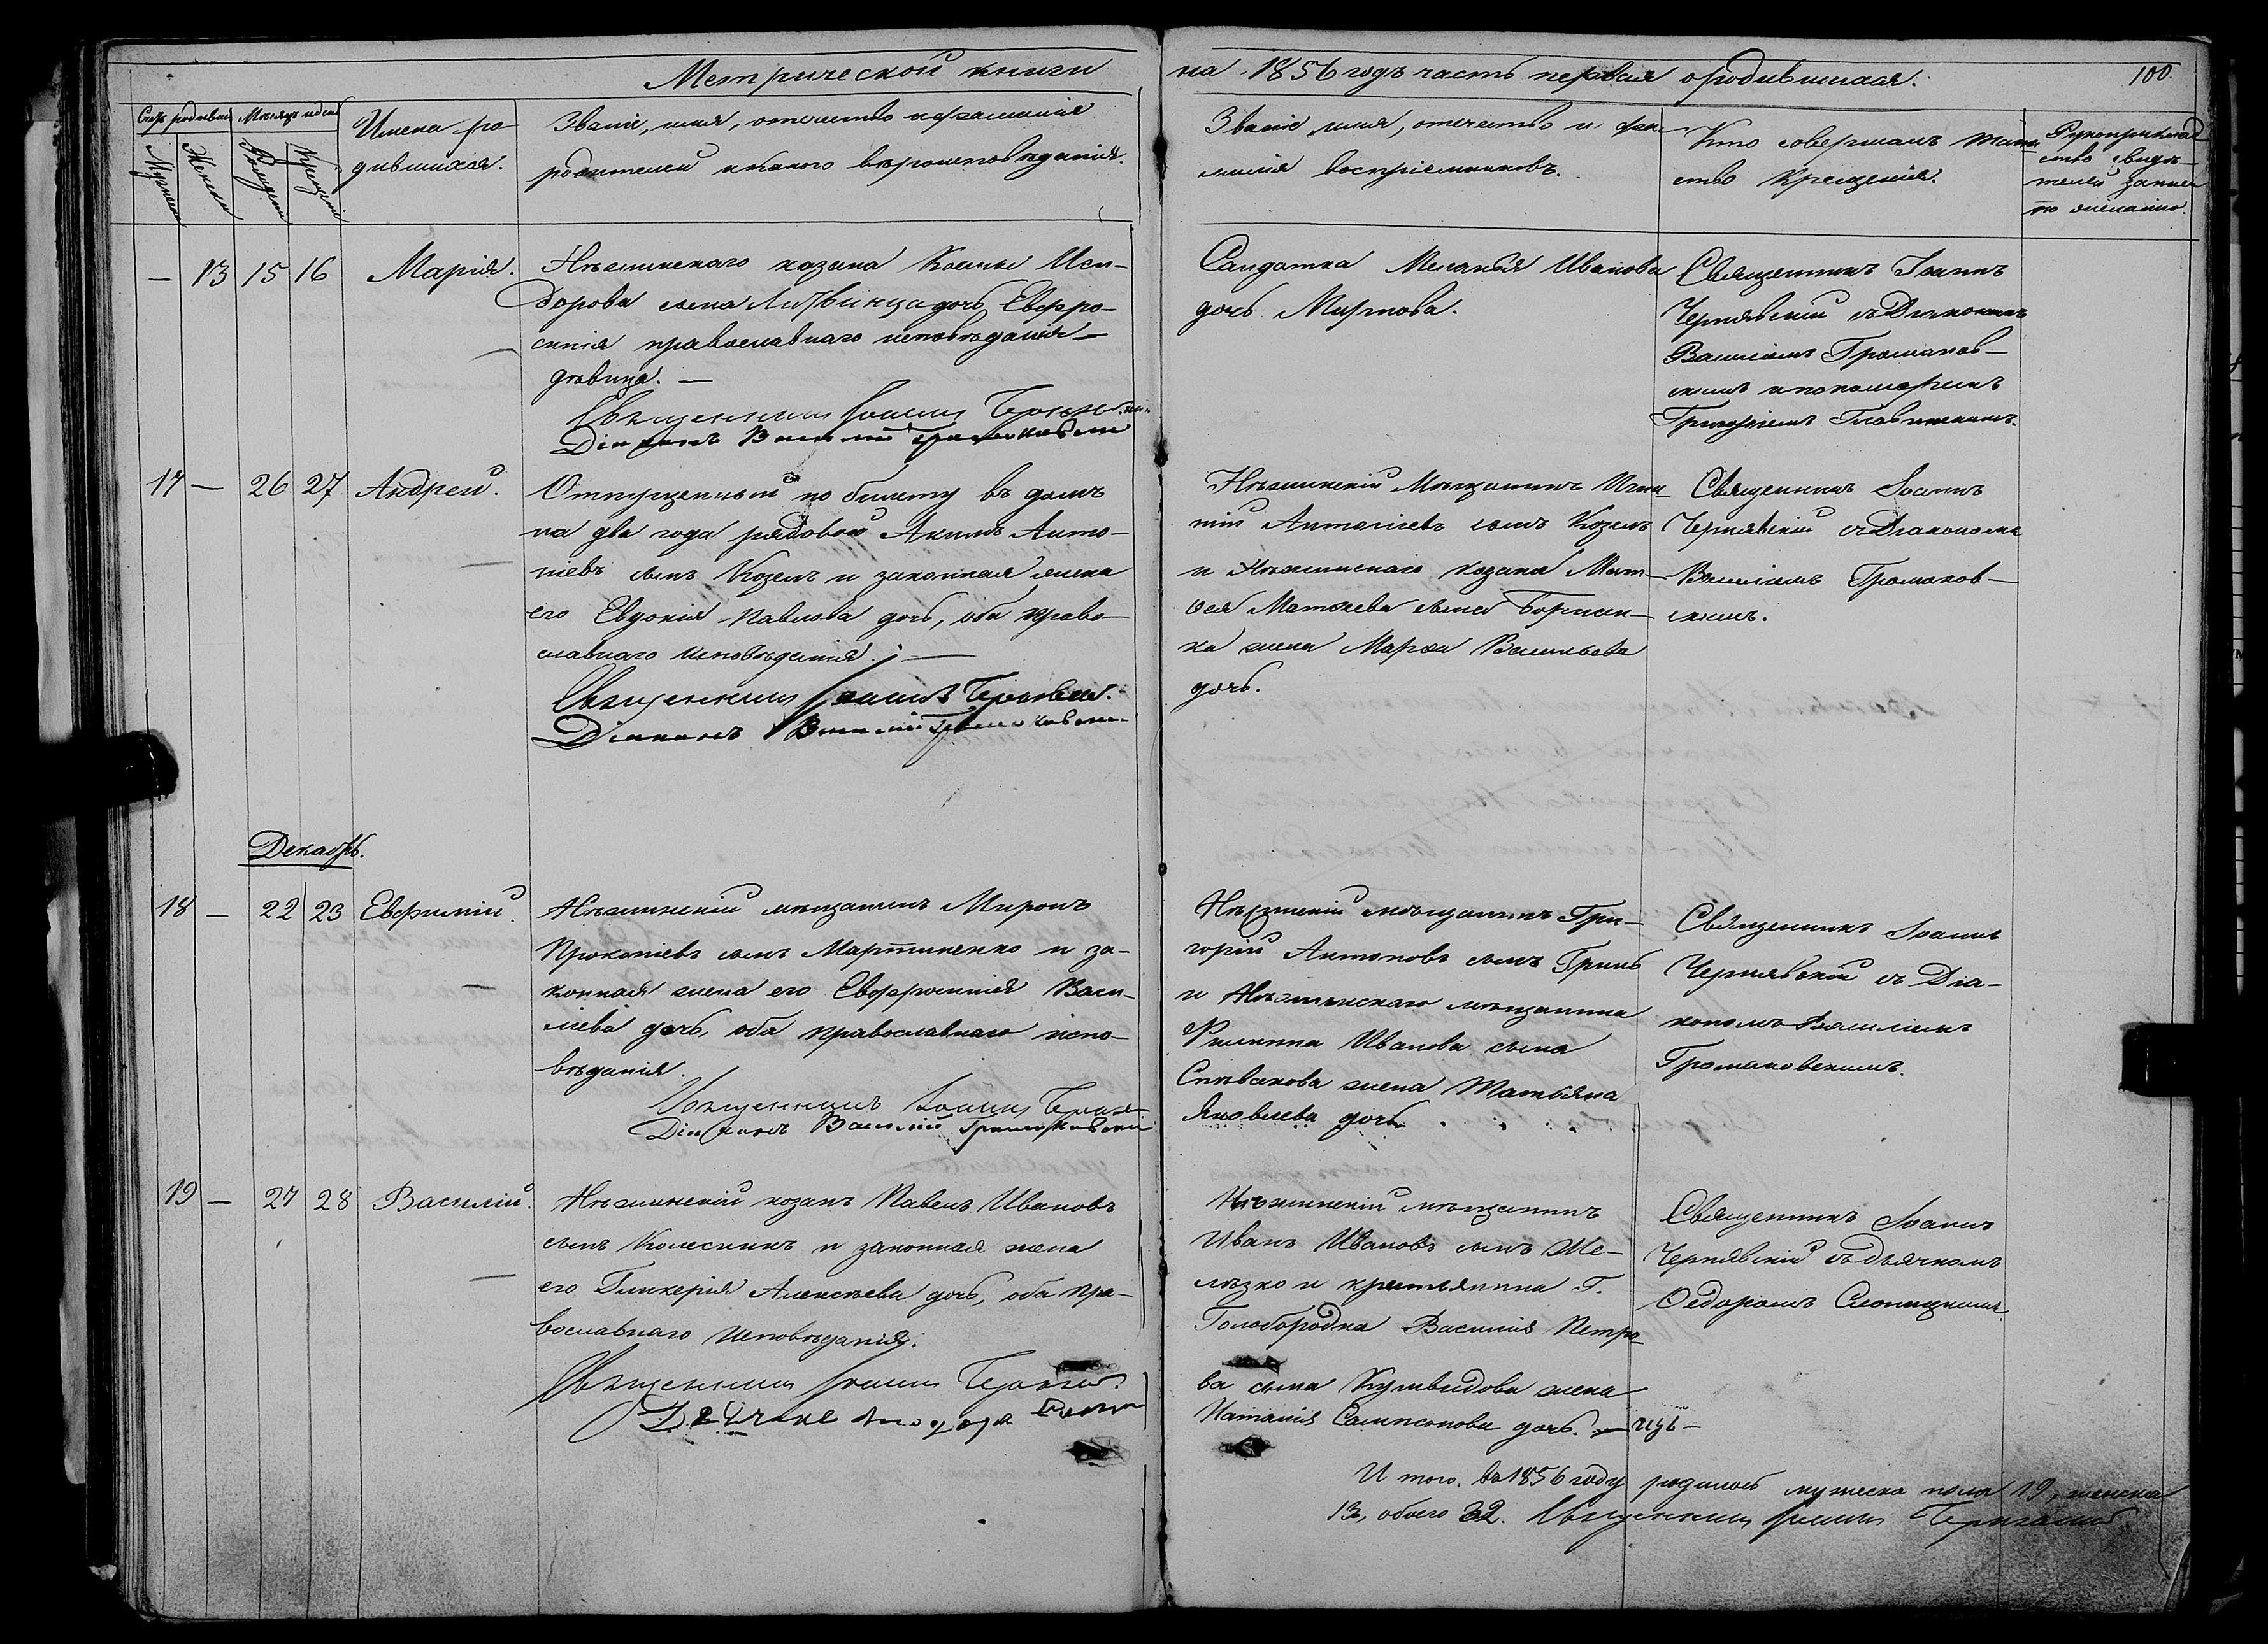 Метрической книги на 1856 годъ часть первая о родившихся. 100.
Счетъ родившихся
Мѣсяцъ и день
Имена ро-
дившихся.
Званіе, имя, отчество и фамилія
родителей и какого вѣроисповѣданія.
Званіе, имя, отчество и фа-
милія воспріемниковъ.
Кто совершалъ таин-
ство крещенія.
Рукоприклад
ство свидѣ-
телей записи
по желанію.
Мужескъ
Женска
Рожденія
Крещенія
— 13 15 16 Марія.
Нѣжинскаго козака Космы Иси-
дорова сына Литвинца дочь Евфро-
синія православнаго исповѣданія —
дѣвица. —
Священникъ Іоаннъ
Діаконъ Василій Громаковскій
Солдатка Меланія Иванова
дочь Миртова.
Священникъ Іоаннъ
Чернявскій съ Діакономъ
Василіемъ Громаков-
скимъ и пономаремъ
Григоріемъ
17 — 26 27 Андрей.
Отпущенный по билету въ домъ
на два года рядовой Акимъ Анто-
ніевъ сынъ Козелъ и законная жена
его Евдокія Павлова дочь, оба право-
славнаго исповѣданія. —
Священникъ Іоаннъ
Діаконъ Василій Громаковскій
Нѣжинскій Мѣщанинъ Игна
тій Антоніевъ сынъ Козелъ
и Нѣжинскаго козака Мат-
ѳея Матвеева сына
ка жена Марѳа Васильева
дочь.
Священникъ Іоаннъ
Чернявскій съ Діакономъ
Василіемъ Громаков-
скимъ.
Декабрь.
18 — 22 23 Евфимій.
Нѣжинскій мѣщанинъ Миронъ
Прокопіевъ сынъ Мартиненко и за-
конная жена его Евфросинія Васи-
ліева дочь, оба православнаго испо-
вѣданія.
Священникъ Іоаннъ
Діаконъ Василій Громаковскій
Нѣжинскій мѣщанинъ Гри-
горій Антоновъ сынъ Гринь
и Нѣжинскаго мѣщанина
Филиппа Иванова сына
Спѣвакова жена Татьяна
Яковлева дочь.
Священникъ Іоаннъ
Чернявскій съ Діа-
кономъ Василіемъ
Громаковскимъ.
19 — 27 28 Василій.
Нѣжинскій козакъ Павелъ Ивановъ
сынъ Колесникъ и законная жена
его Гликерія Алексѣева дочь, оба пра-
вославнаго исповѣданія.
Священникъ Іоаннъ
Нѣжинскій мѣщанинъ
Иванъ Ивановъ сынъ Же-
лѣзко и крестьянина Г.
Голобородка Василія Петро
ва сына жена
Наталія Сампсонова дочь. —
Священникъ Іоаннъ
Чернявскій съ дьячкомъ
Ѳедоромъ
И того въ 1856 году родилось мужеска пола 19, женска
13, обоего 32. Священникъ Іоаннъ